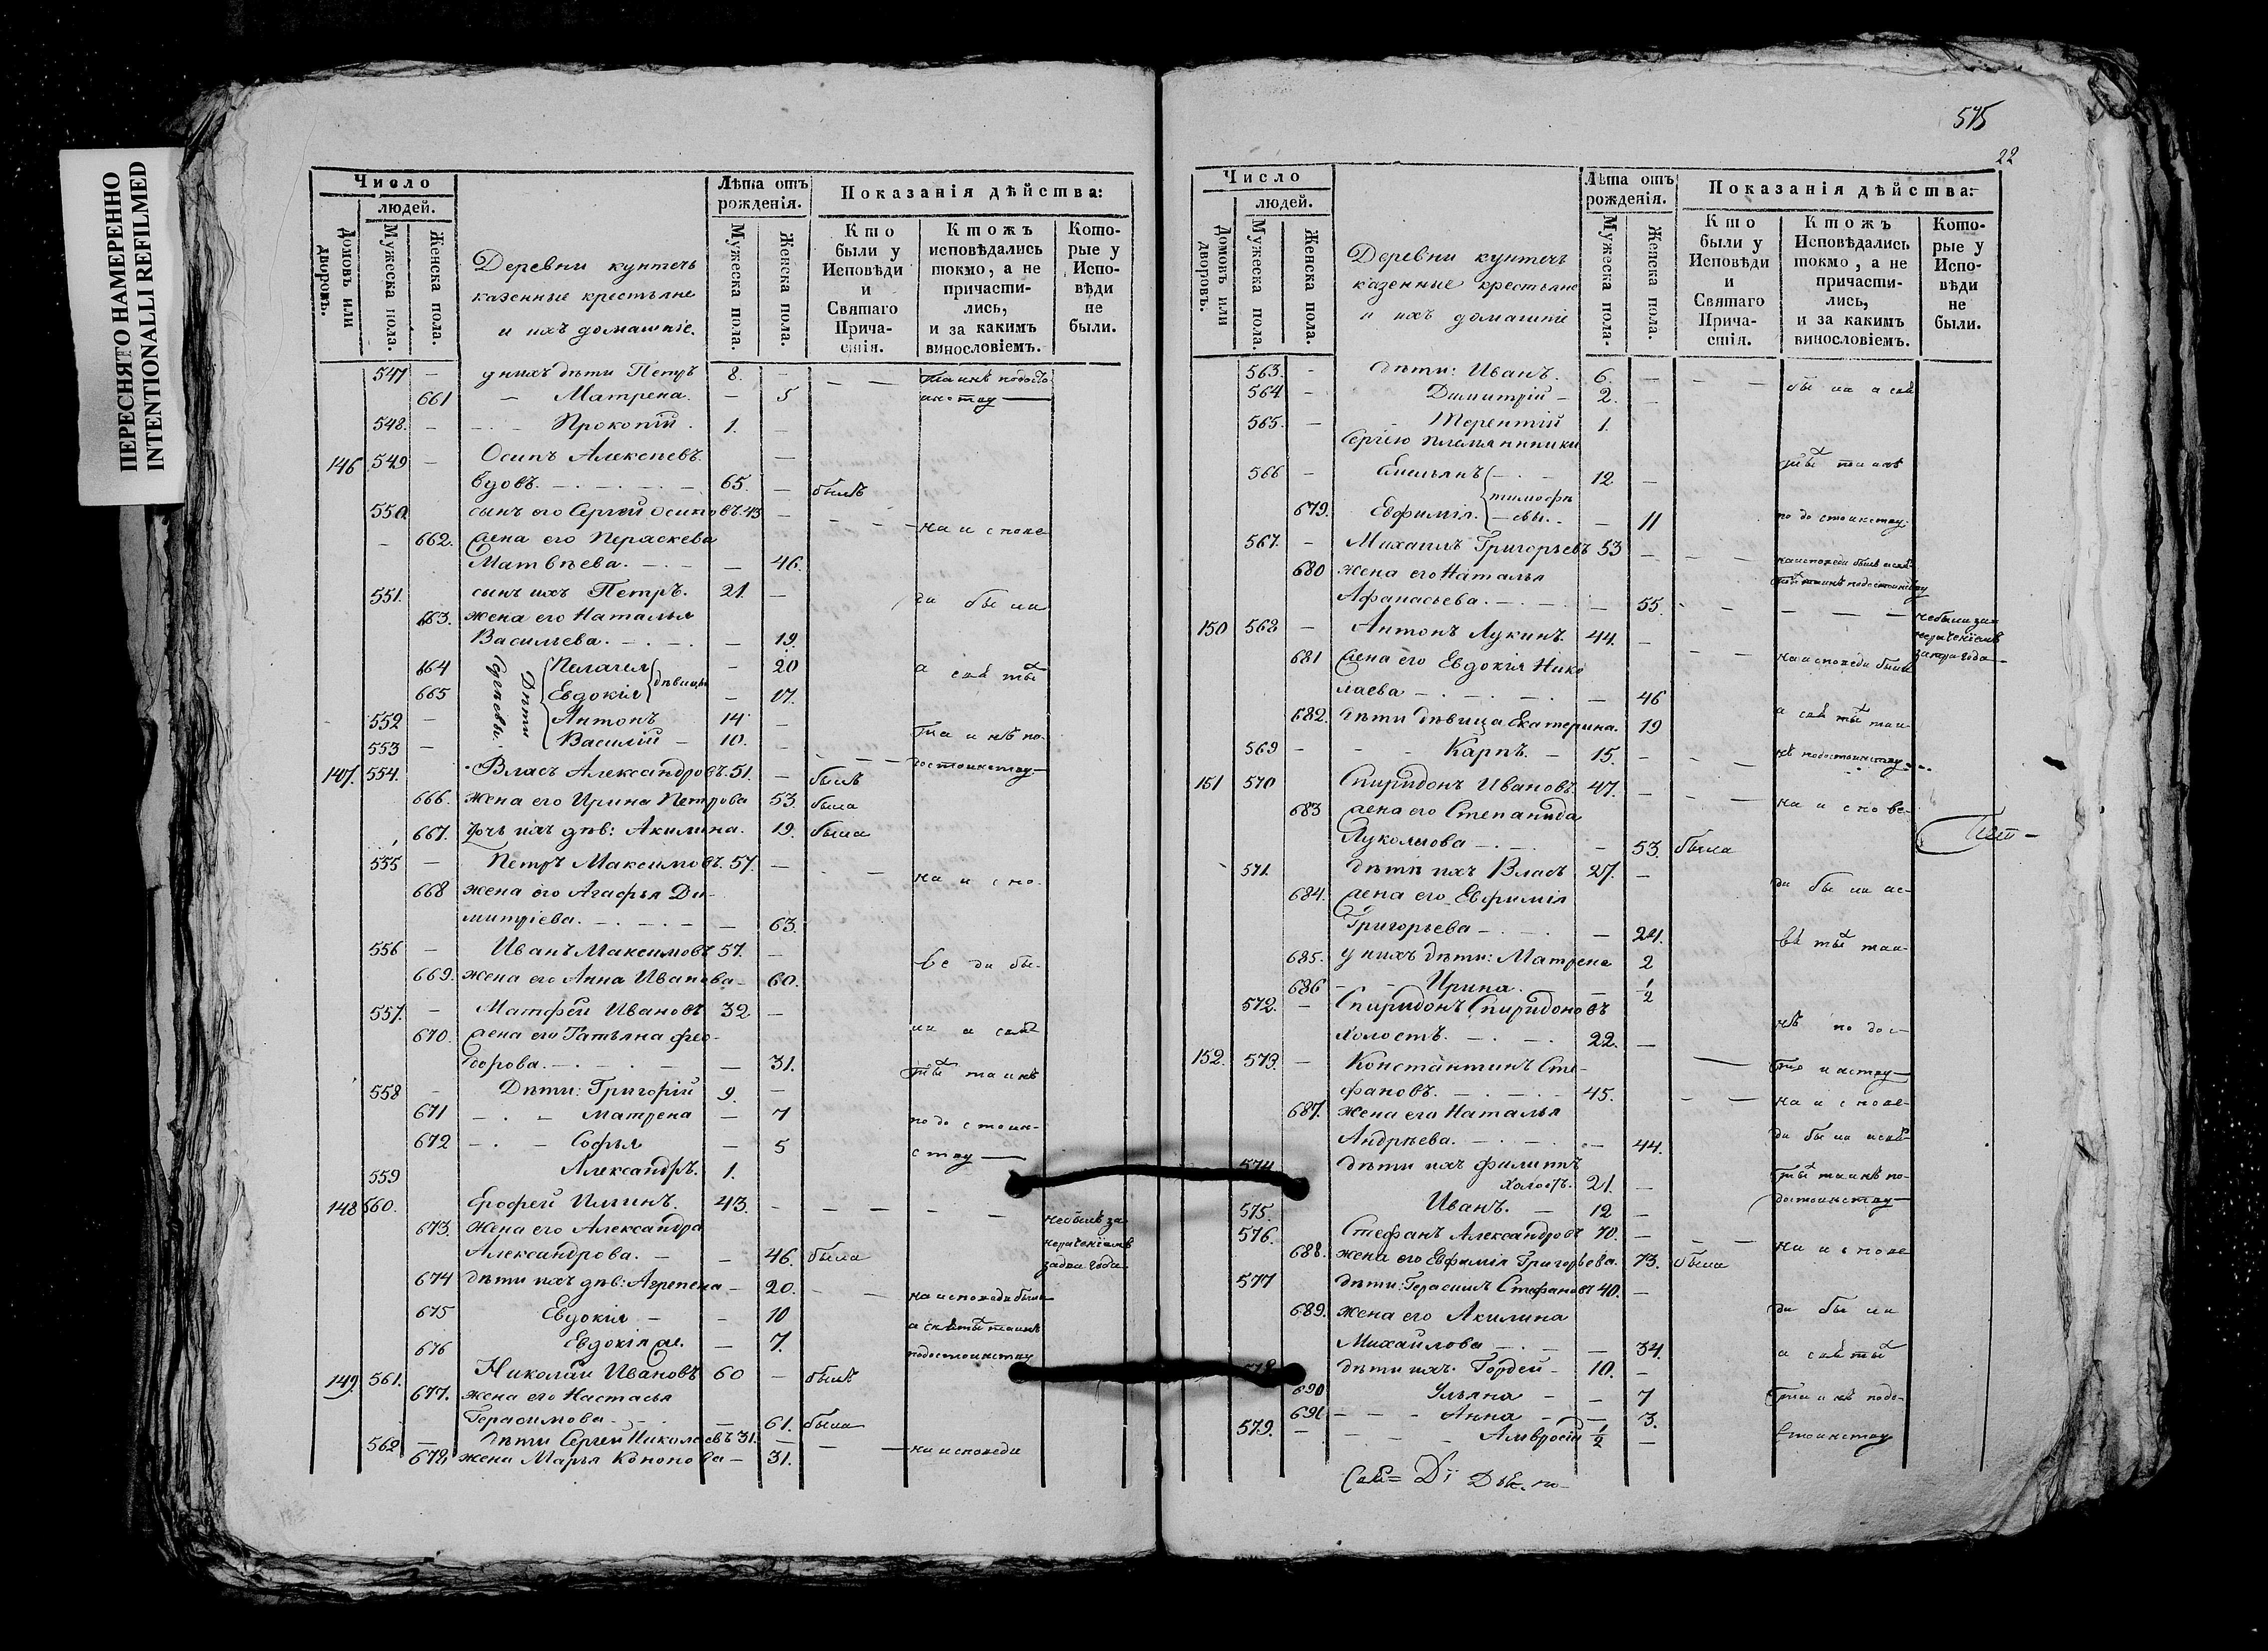 ПЕРЕСНЯТО НАМЕРЕННО
INTENTIONALLI REFILMED
Число
людей.
Домовъ или дворовъ.
Мужеска пола.
Женска пола.
Деревни кунтечь
казенные крестьяне
и ихъ домашніе.
Лѣта отъ рожденія.
Мужеска пола.
Женска пола.
Показанія дѣйства:
Кто были у Исповѣди и Святаго Причастія.
Ктожъ исповѣдались токмо, а не причастились, и за какимъ винословіемъ.
Которые у Исповѣди не были.
547 — у нихъ дѣти Петръ 8. —
661 — Матрена. — 5
548. — Прокопій. 1. —
146 549 — Осипъ Алексеевъ —
вдовъ. 65. — былъ
550 сынъ его Сергей Осиповъ. 43 — на испове
662. жена его Пераскева
Матвѣева. — 46.
551. сынъ ихъ Петръ. 21. — ди были
663. жена его Наталья
Васильева. — 19.
664 Дѣти Сергѣевы: Пелагея дѣвицы — 20 а свя тых
665 Евдокія — 17.
552 — Антонъ 14 —
553 — Василій 10. — Таинъ по-
147. 554. Власъ Александровъ. 51. — былъ достоинству
666. жена его Ирина Петрова 53. была
667. дочь ихъ дѣв: Акилина. 19. была
555 — Петръ Максимовъ. 57. — на испо-
668 жена его Агафья Ди-
митріева. — 63.
556 — Иванъ Максимовъ 57. —
669. жена его Анна Иванова 60. ве ди бы-
557. — Матфей Ивановъ 32 —
670. жена его Татьяна Фео- ли а свя
дорова. — 31.
558 — Дѣти: Григорій 9. — тых таинъ
671 Матрена — 7
672 Софья — 5 по до стоин-
559 Александръ. 1. ству
148 560. Ерофей Илиинъ. 43. — не былъ за
673. жена его Александра нераченіемъ
Александрова. — 46. была за два года
674 дѣти ихъ дѣв: Агрепена — 20. на исповеди были
675 Евдокія — 10
676 Евдокія — 7. а святых таинъ
149. 561. Николай Ивановъ 60 — былъ
677. жена его Настасья
Герасимова — 61. была
562 — дѣти Сергей Николаевъ 31. —
678 жена Марья Кононова — 31. на исповеди
575
22
Число
людей.
Домовъ или дворовъ.
Мужеска пола.
Женска пола.
Деревни кунтечь
казенные крестьяне
и ихъ домашніе
Лѣта отъ рожденія.
Мужеска пола.
Женска пола.
Показанія дѣйства:
Кто были у Исповѣди и Святаго Причастія.
Ктожъ Исповѣдались токмо, а не причастились, и за какимъ винословіемъ.
Которые у Исповѣди не были.
563. — дѣти: Иванъ. 6. —
564 — Димитрій 2. — бы ли а свя
565. — Терентій 1.
Сергію племянники
566 — Емельянъ тимофѣ 12 — тых таинъ
679. Евфимія евы. — 11 по до стоинству
567. — Михаилъ Григорьевъ 53 —
680 жена его Наталья на исповеди были а свя
Афанасьева. — 55. тых таинъ подостоинству
150 568 — Антонъ Лукинъ. 44. — не былъ за
681 жена его Евдокія Нико на исповеди были
лаева — 46
682. дѣти дѣвица Екатерина. 19 а свя тых таи-
569 — Карпъ. 15. нъ подостоинству
151 570 Спиридонъ Ивановъ. 47. —
683 жена его Степанида на испове-
Луколмова — 53. была
571. дѣти ихъ Власъ 27. —
684. жена его Евфимія ди бы ли а с-
Григорьева — 24.
685. у нихъ дѣти: Матрена 2 вя тых таи-
686 Ирина. — 1/2
572. — Спиридонъ Спиридоновъ
холостъ. 22. — нъ по дос-
152. 573. — Константинъ Сте- то инству
фановъ. 45.
687. жена его Наталья на испове-
Андрѣева. — 44. ди бы ли а свя
574 дѣти ихъ Филиппъ
холостъ. 21. — тых таинъ по-
575. Иванъ. 12 — достоинству
576. Стефанъ Александровъ 70. —
688. жена его Евфимія Григорьева. 73. была на испове
577 дѣти: Герасимъ Стефановъ 40. —
689. жена его Акилина ди бы ли
Михайлова — 34.
578. дѣти ихъ. Гордей 10. — а свя тых
690 Ульяна — 7
691 Анна — 3. таи нъ подо-
579. — Амвросій 1/2 — стоинству